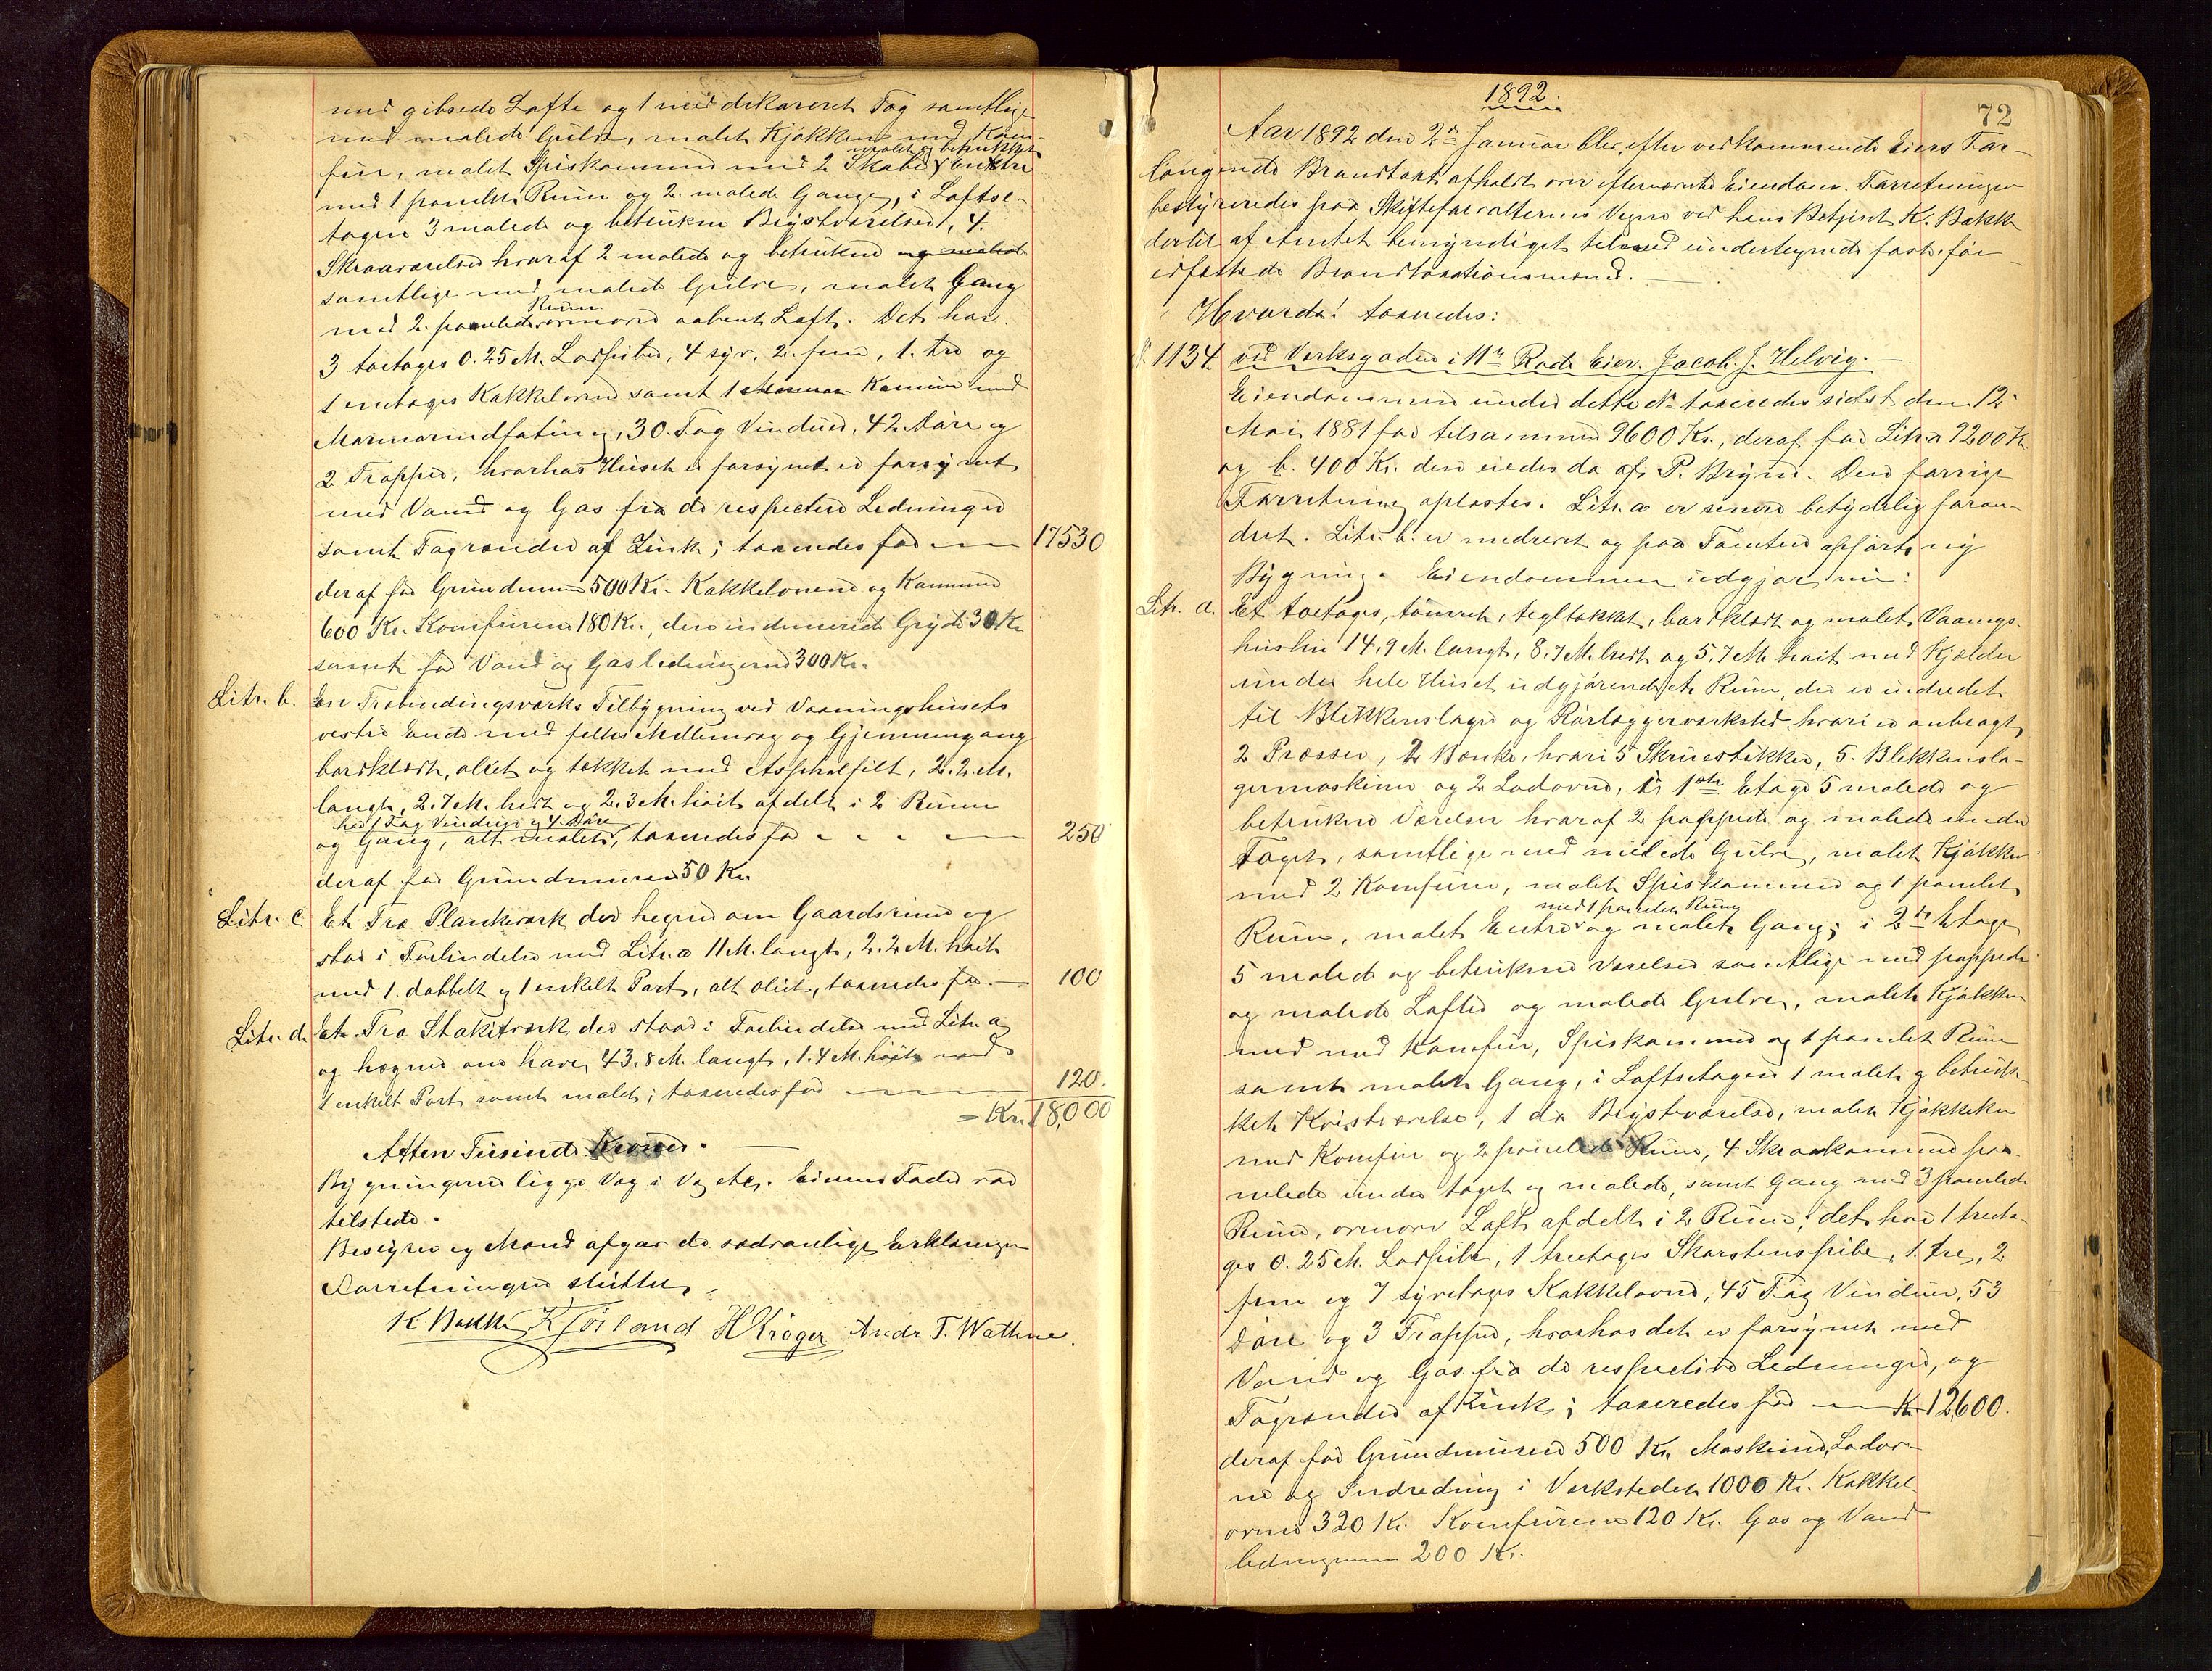 med gibsede Lofte og 1 med dekoreret Tag samtlige
med malede Gulve, malet Kjøkken med Kom-
fur, malet Spiskammer med 2 Skabe, malet og betrukket Entre
med 1 panelet Rum og 2 malede Gange, i Loftse-
tagen 3 malede og betrukne Kvistværelser, 4
Skraaværelser hvoraf 2 malede og betrukne og malede
samtlige med malede Gulve, malet Gang
med 2 panelede Rum ovenover aabent Loft. Det har
3 toetages 0.25 M. Lodpiber, 4 syv, 2 fem, 1 tre og
1 enetages Kakkelovne samt 1 Kamin med
Marmorindfatning, 30 Fag Vinduer, 42 Døre og
2 Trapper, hvorhos Huset er forsynet er forsynet
med Vand og Gas fra de respective Ledninger
samt Tagrender af Zink; taxeredes for — 17530
deraf for Grundmuren 500 Kr. Kakkelovnene og Kaminen
600 Kr. Komfuren 180 Kr., den indmurede Gryde 30 Kr.
samt for Vand og Gasledningerne 300 Kr.
Litr. b. En Træbindingsværks Tilbygning ved Vaaningshusets
vestre Ende med fælles Mellemvæg og Gjennemgang
bordklædt, oliet og tækket med Asphalfilt, 2.2 M.
langt, 2.7 M. bredt og 2.3 M. høit afdelt i 2 Rum
har 1 Fag Vinduer og 4 Døre
og Gang, alt malet, taxeredes for — 250
deraf for Grundmuren 50 Kr.
Litr. c. Et Træ Plankeværk der hegner om Gaardsrum og
staar i Forbindelse med Litr. a 11 M. langt, 2.2 M. høit
med 1 dobbelt og 1 enkelt Port, alt oliet, taxeredes for — 100
Litr. d. Et Træ Stakitværk der staar i Forbindelse med Litr. a
og hegner om have, 43.8 M. langt, 1.4 M. høit med
1 enkelt Port samt malet; taxeredes for — 120.
= Kr. 18,000
Atten Tusinde Kroner.
Bygningerne ligge Væg i Væg etc. Eierens Fader var
tilstede.
Bestyrer og Mænd afgav de sædvanlige Erklæringer
Forretningen sluttet
K Bakke K Jöiland H Kröger Andr. T. Wathne.
1892.
72
Aar 1892 den 2den Januar blev efter vedkommende Eiers For-
langende Brandtaxt afholdt over efternævnte Eiendom. Forretningen
bestyredes paa Skifteforvalterens Vegne ved hans Betjent K. Bakke
dertil af Amtet bemyndiget tilmed undertegnede faste for
edfæstede Brandtaxationsmænd.
Hvorda! taxeredes:
N. 1134. ved Verksgaden i 11te Rode Eier. Jacob J. Helvig.
Eiendommen under dette No taxeredes sidst den 12
Mai 1881 for tilsammen 9600 Kr., deraf for Litr. a 9200 Kr
og b. 400 Kr. den eiedes da af P. Bryne. Den forrige
Forretning oplæstes. Litr. a er senere betydelig foran-
dret. Litr. b. er nedrevet og paa Tomten opført ny
Bygning. Eiendommen udgjør nu:
Litr. a. Et toetages, tømret, tegltækket, bordklædt og malet Vaanings-
hus 14.9 M. langt, 8.7 M. bredt og 5.7 M. høit med Kjælder
under hele Huset udgjørende et Rum, der er indredet
til Blikkenslager og Rørlæggerværksted hvori er anbragt
2 Presser, 2 Bænke, hvori 5 Skruestikker, 5 Blikkensla-
germaskiner og 2 Lodovne, i 1ste Etage 5 malede og
betrukne Værelser hvoraf 2 pappede og malede under
Taget, samtlige med malede Gulve, malet Kjøkken
med 2 Komfure, malet Spiskammer og 1 panelet
Rum, malet Entre med 1 panelet Rum og malet Gang; i 2den Etage
5 malede og betrukne Værelser samtlige med pappede
og malede Lofter og malede Gulve, malet Kjøkken
med med Komfur, Spiskammer og 1 panelet Rum
samt malet Gang, i Loftsetagen 1 malet og betruk-
ket Kvistværelse, 1 do Kvistværelse, malet Kjøkken
med Komfur og 2 panelede Rum, 4 Skraakammer pa-
nelede under taget og malede, samt Gang med 3 panelede
Rum, ovenover Loft afdelt i 2 Rum; det har 1 treeta-
ges 0.25 M. Lodpibe, 1 treetages Skorstenspibe, 1 tre, 2
fem og 7 syvetages Kakkelovne, 45 Fag Vinduer, 53
Døre og 3 Trapper, hvorhos det er forsynet med
Vand og Gas fra de respective Ledninger, og
Tagrender af Zink; taxeredes for — Kr 12600.
deraf for Grundmuren 500 Kr. Maskiner, Lodov-
ne og Indredning i Verkstedet 1000 Kr. Kakkel
ovne 320 Kr. Komfurene 120 Kr. Gas og Vand
ledningerne 200 Kr.